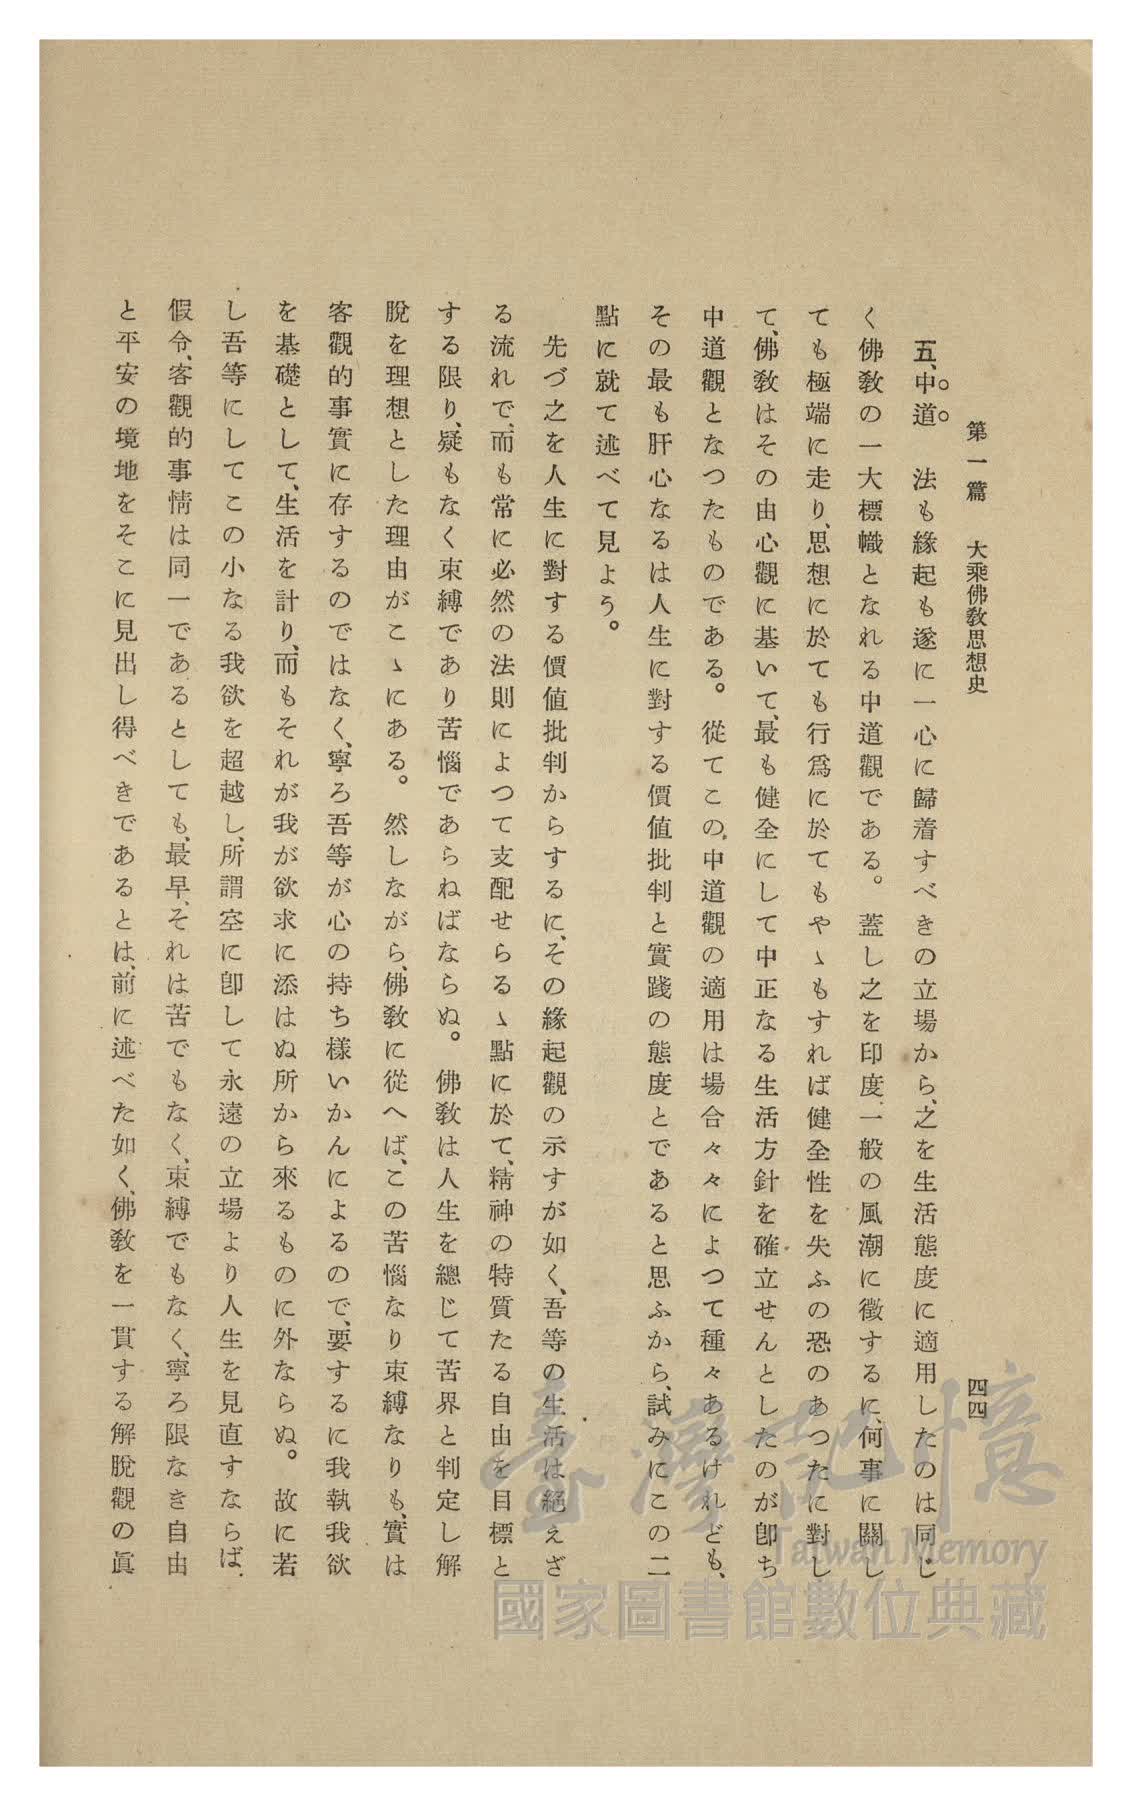 第一篇　大乘佛敎思想史
四四
五、中道　法も緣起も遂に一心に歸着すべきの立場から、之を生活態度に適用したのは同じ
く佛敎の一大標幟となれる中道觀である。蓋し之を印度一般の風潮に徵するに、何事に關し
ても極端に走り、思想に於ても行爲に於てもやゝもすれば健全性を失ふの恐のあつたに對し
て、佛敎はその由心觀に基いて、最も健全にして中正なる生活方針を確立せんとしたのが卽ち
中道觀となつたものである。從てこの中道觀の適用は場合々々によつて種々あるけれども、
その最も肝心なるは人生に對する價値批判と實踐の態度とであると思ふから、試みにこの二
點に就て述べて見よう。
先づ之を人生に對する價値批判からするに、その緣起觀の示すが如く、吾等の生活は絕えざ
る流れで、而も常に必然の法則によつて支配せらるゝ點に於て、精神の特質たる自由を目標と
する限り、疑もなく束縛であり苦惱であらねばならぬ。佛敎は人生を總じて苦界と判定し解
脫を理想とした理由がこゝにある。然しながら、佛敎に從へば、この苦惱なり束縛なりも、實は
客觀的事實に存するのではなく、寧ろ吾等が心の持ち樣いかんによるので、要するに我執我欲
を基礎として、生活を計り、而もそれが我が欲求に添はぬ所から來るものに外ならぬ。故に若
し吾等にしてこの小なる我欲を超越し、所謂空に卽して永遠の立場より人生を見直すならば、
假令、客觀的事情は同一であるとしても、最早、それは苦でもなく、束縛でもなく、寧ろ限なき自由
と平安の境地をそこに見出し得べきであるとは、前に述べた如く、佛敎を一貫する解脫觀の眞
臺灣記憶
Taiwan Memory
國家圖書館數位典藏